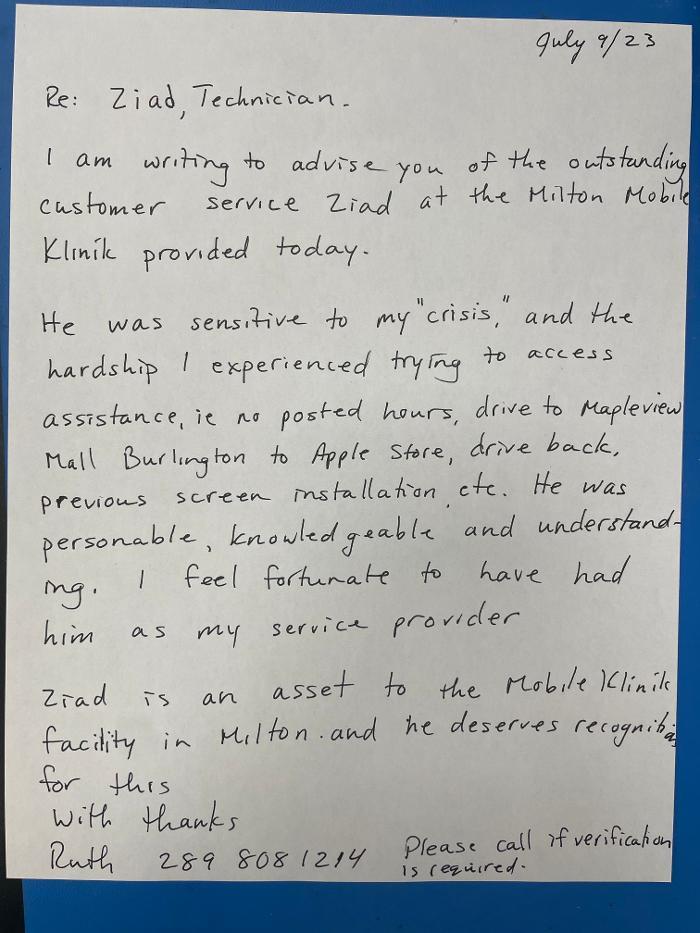 July 9/23
Re: Ziad, Technician.
I am writing to advise you of the outstanding
customer service Ziad at the Milton Mobile
Klinik provided today.
He was sensitive to my "crisis," and the
hardship I experienced trying to access
assistance, ie no posted hours, drive to Mapleview
Mall Burlington to Apple Store, drive back,
previous screen installation, etc. He was
personable, knowledgeable and understand-
ing. I feel fortunate to have had
him as my service provider
Ziad is an asset to the Mobile Klinik
facility in Milton. and he deserves recognition
for this
With thanks
Ruth 289 808 1214 Please call if verification
is required.